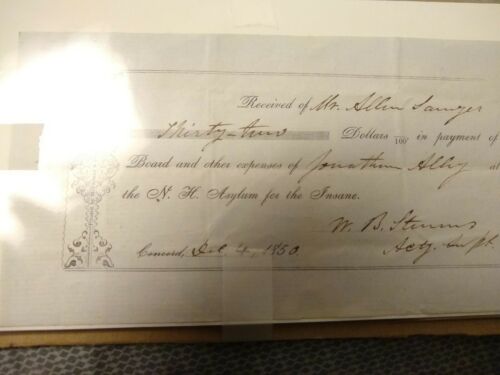 Received of Mr. Allen Sawyer
Thirty-two Dollars /100 in payment of
Board and other expenses of Jonathan Alley at
the N. H. Asylum for the Insane.
W. B. Stevens
Concord, Dec. 4, 1850. Actg. Supt.